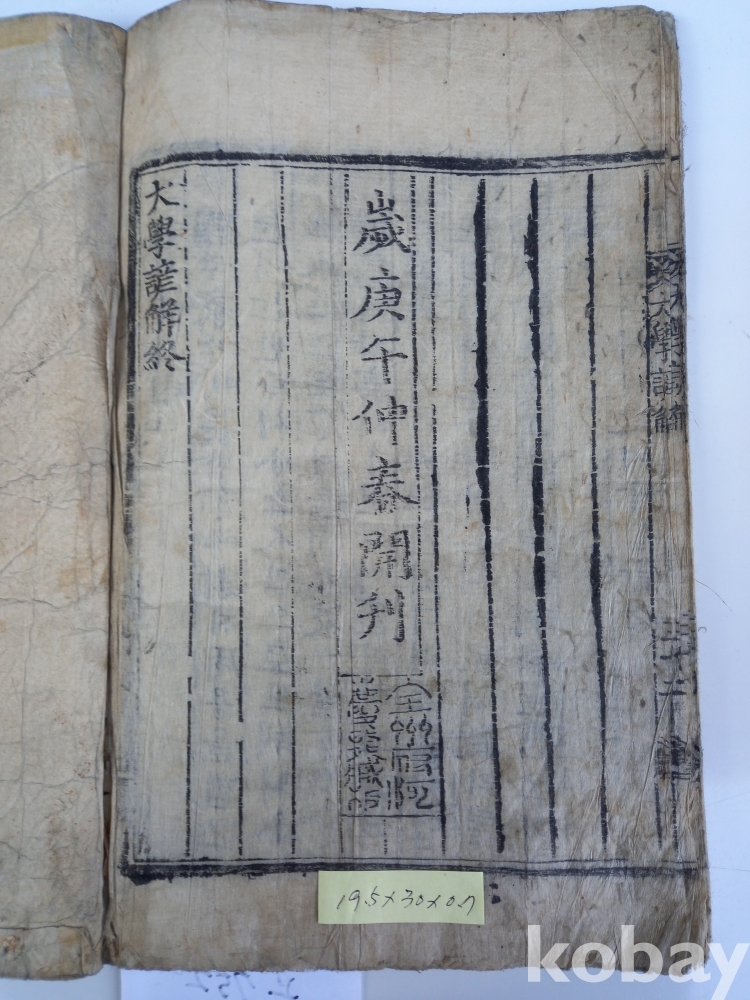 大學諺解
歲庚午仲春開刊
全州府河
慶龍藏板
大學諺解終
19.5x30x0.7
kobay